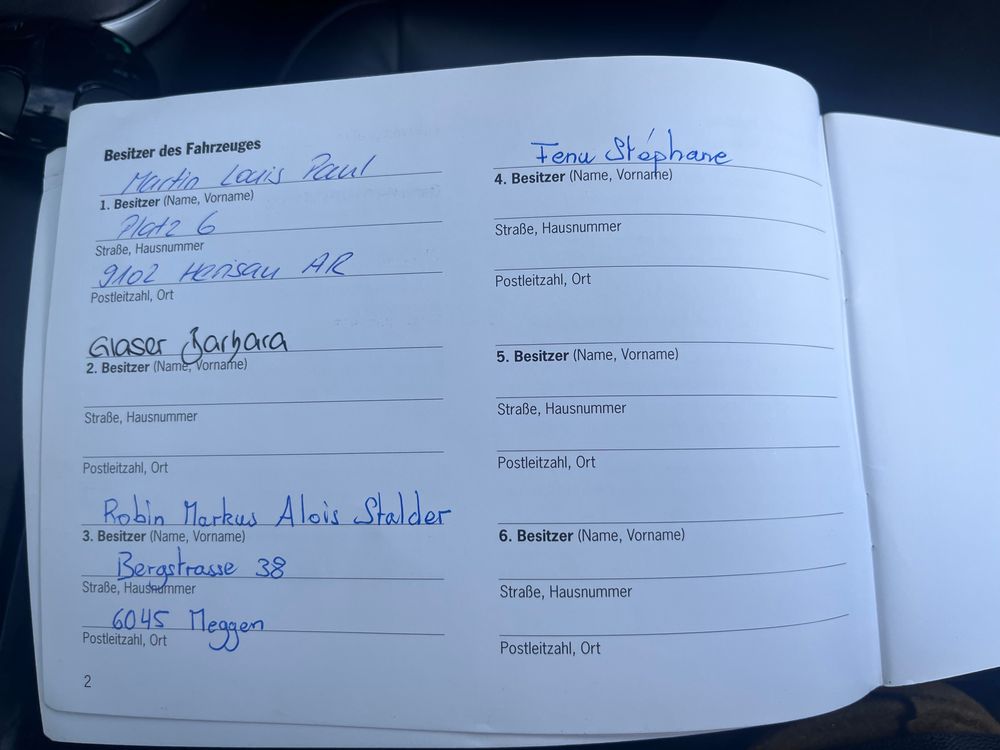 Besitzer des Fahrzeuges
Martin Louis Paul
1. Besitzer (Name, Vorname)
Platz 6
Straße, Hausnummer
9102 Herisau AR
Postleitzahl, Ort
Glaser Barbara
2. Besitzer (Name, Vorname)
Straße, Hausnummer
Postleitzahl, Ort
Robin Markus Alois Stalder
3. Besitzer (Name, Vorname)
Bergstrasse 38
Straße, Hausnummer
6045 Meggen
Postleitzahl, Ort
2
Fenu Stéphane
4. Besitzer (Name, Vorname)
Straße, Hausnummer
Postleitzahl, Ort
5. Besitzer (Name, Vorname)
Straße, Hausnummer
Postleitzahl, Ort
6. Besitzer (Name, Vorname)
Straße, Hausnummer
Postleitzahl, Ort